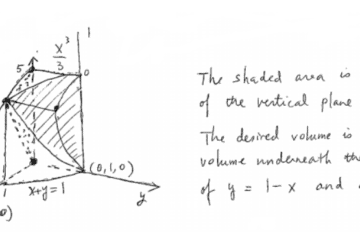 1
x³
3
5
0
(0, 1, 0)
x+y=1
1
y
0)
The shaded area is
of the vertical plane
The desired volume is
volume underneath the
of y = 1 - x and